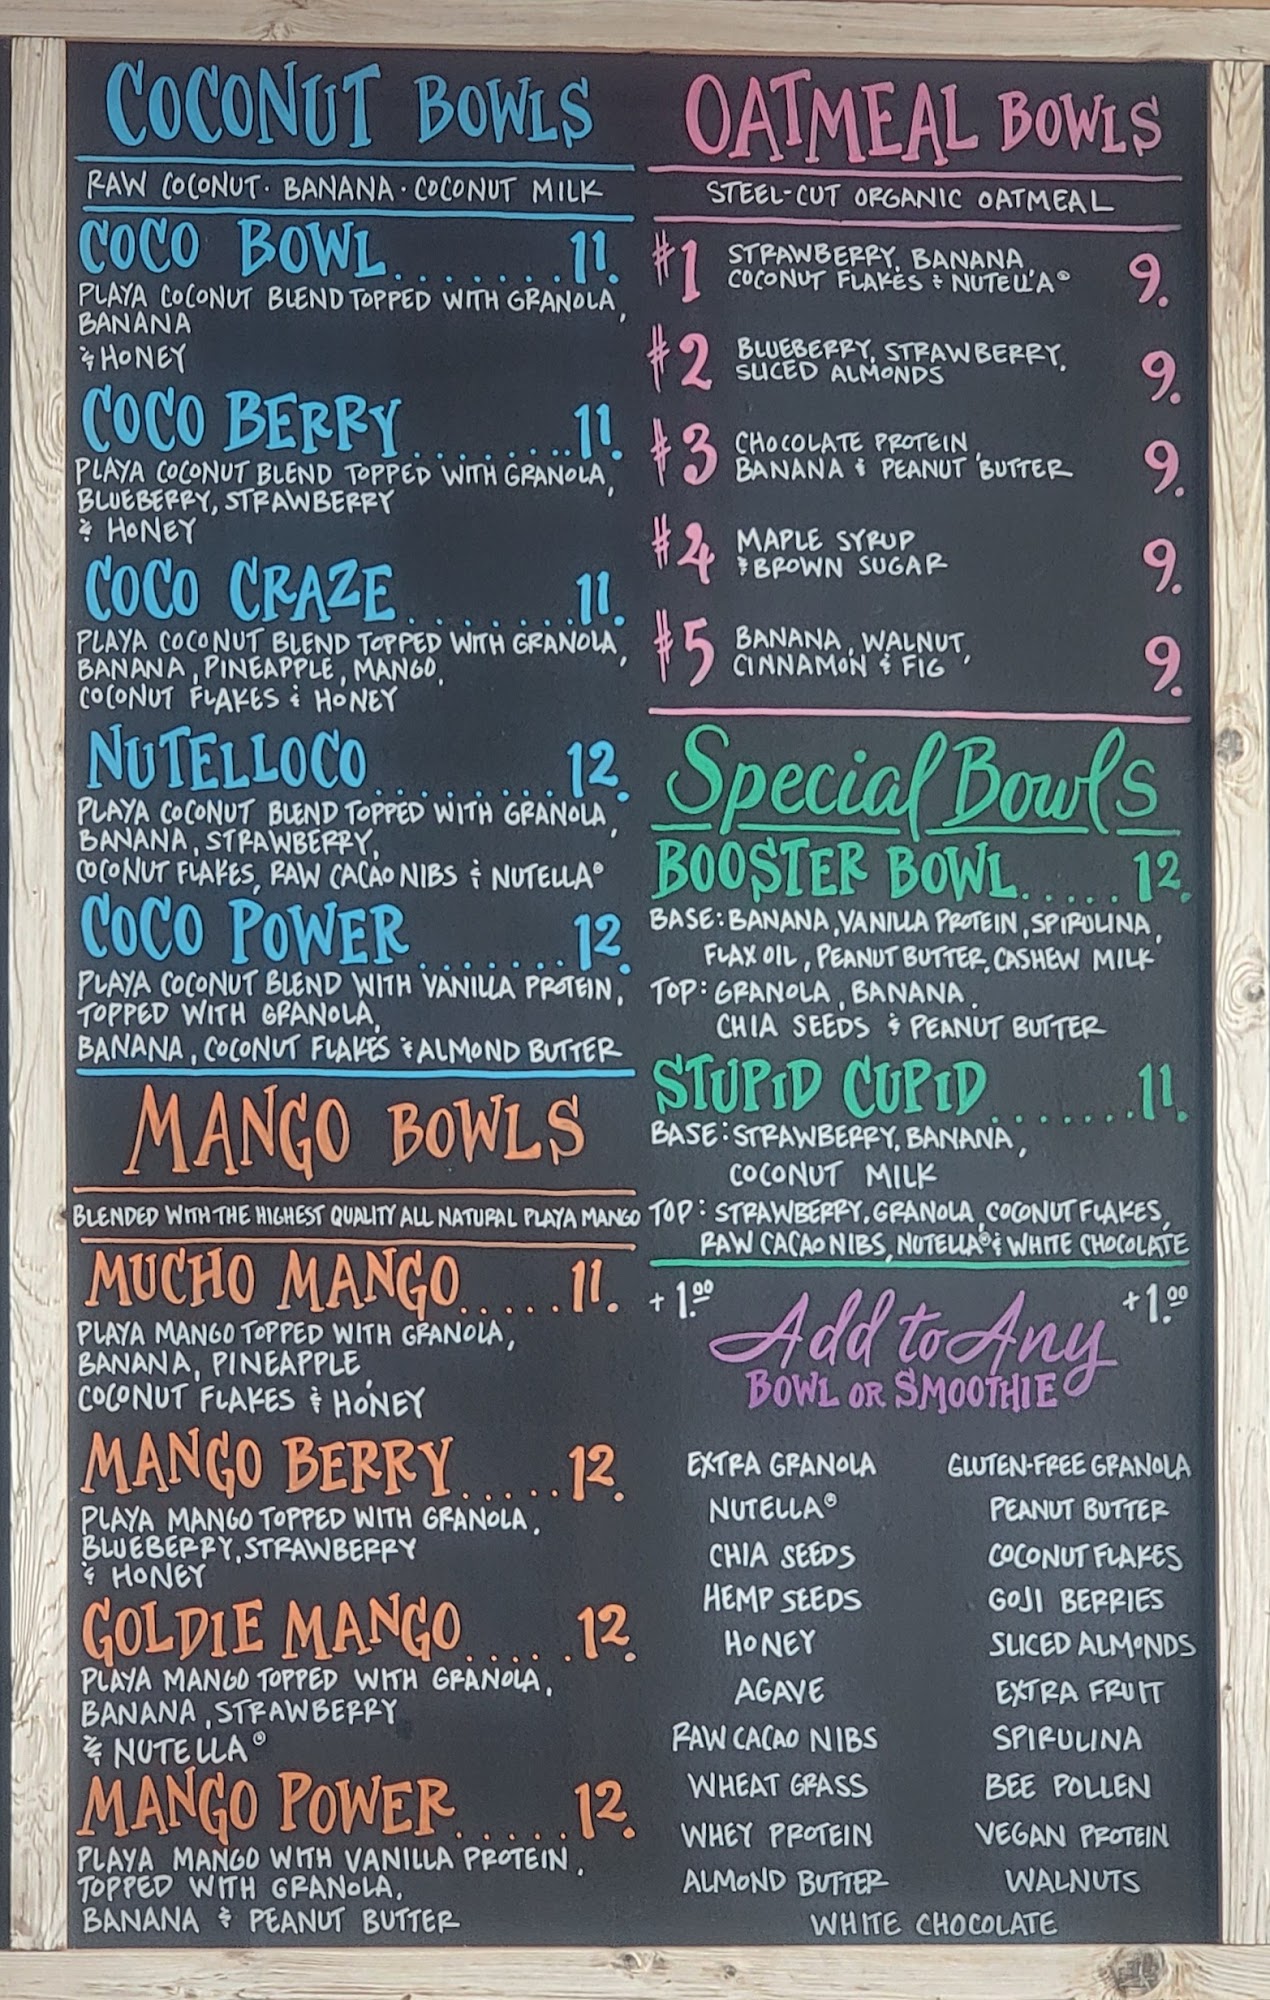 COCONUT BOWLS
RAW COCONUT · BANANA · COCONUT MILK
COCO BOWL........11.
PLAYA COCONUT BLEND TOPPED WITH GRANOLA,
BANANA
& HONEY
COCO BERRY.........11.
PLAYA COCONUT BLEND TOPPED WITH GRANOLA,
BLUEBERRY, STRAWBERRY
& HONEY
COCO CRAZE........11.
PLAYA COCONUT BLEND TOPPED WITH GRANOLA,
BANANA, PINEAPPLE, MANGO,
COCONUT FLAKES & HONEY
NUTELLOCO.........12.
PLAYA COCONUT BLEND TOPPED WITH GRANOLA,
BANANA, STRAWBERRY,
COCONUT FLAKES, RAW CACAO NIBS & NUTELLA®
COCO POWER.......12.
PLAYA COCONUT BLEND WITH VANILLA PROTEIN,
TOPPED WITH GRANOLA,
BANANA, COCONUT FLAKES & ALMOND BUTTER
MANGO BOWLS
BLENDED WITH THE HIGHEST QUALITY ALL NATURAL PLAYA MANGO
MUCHO MANGO.....11.
PLAYA MANGO TOPPED WITH GRANOLA,
BANANA, PINEAPPLE,
COCONUT FLAKES & HONEY
MANGO BERRY.....12.
PLAYA MANGO TOPPED WITH GRANOLA,
BLUEBERRY, STRAWBERRY
& HONEY
GOLDIE MANGO.....12.
PLAYA MANGO TOPPED WITH GRANOLA,
BANANA, STRAWBERRY
& NUTELLA®
MANGO POWER.....12.
PLAYA MANGO WITH VANILLA PROTEIN,
TOPPED WITH GRANOLA,
BANANA & PEANUT BUTTER
OATMEAL BOWLS
STEEL-CUT ORGANIC OATMEAL
#1 STRAWBERRY, BANANA, 9.
COCONUT FLAKES & NUTELLA®
#2 BLUEBERRY, STRAWBERRY, 9.
SLICED ALMONDS
#3 CHOCOLATE PROTEIN, 9.
BANANA & PEANUT BUTTER
#4 MAPLE SYRUP 9.
& BROWN SUGAR
#5 BANANA, WALNUT, 9.
CINNAMON & FIG
Special Bowls
BOOSTER BOWL.....12.
BASE: BANANA, VANILLA PROTEIN, SPIRULINA,
FLAX OIL, PEANUT BUTTER, CASHEW MILK
TOP: GRANOLA, BANANA,
CHIA SEEDS & PEANUT BUTTER
STUPID CUPID.......11.
BASE: STRAWBERRY, BANANA,
COCONUT MILK
TOP: STRAWBERRY, GRANOLA, COCONUT FLAKES,
RAW CACAO NIBS, NUTELLA® & WHITE CHOCOLATE
+1.00 Add to Any +1.00
BOWL OR SMOOTHIE
EXTRA GRANOLA GLUTEN-FREE GRANOLA
NUTELLA® PEANUT BUTTER
CHIA SEEDS COCONUT FLAKES
HEMP SEEDS GOJI BERRIES
HONEY SLICED ALMONDS
AGAVE EXTRA FRUIT
RAW CACAO NIBS SPIRULINA
WHEAT GRASS BEE POLLEN
WHEY PROTEIN VEGAN PROTEIN
ALMOND BUTTER WALNUTS
WHITE CHOCOLATE